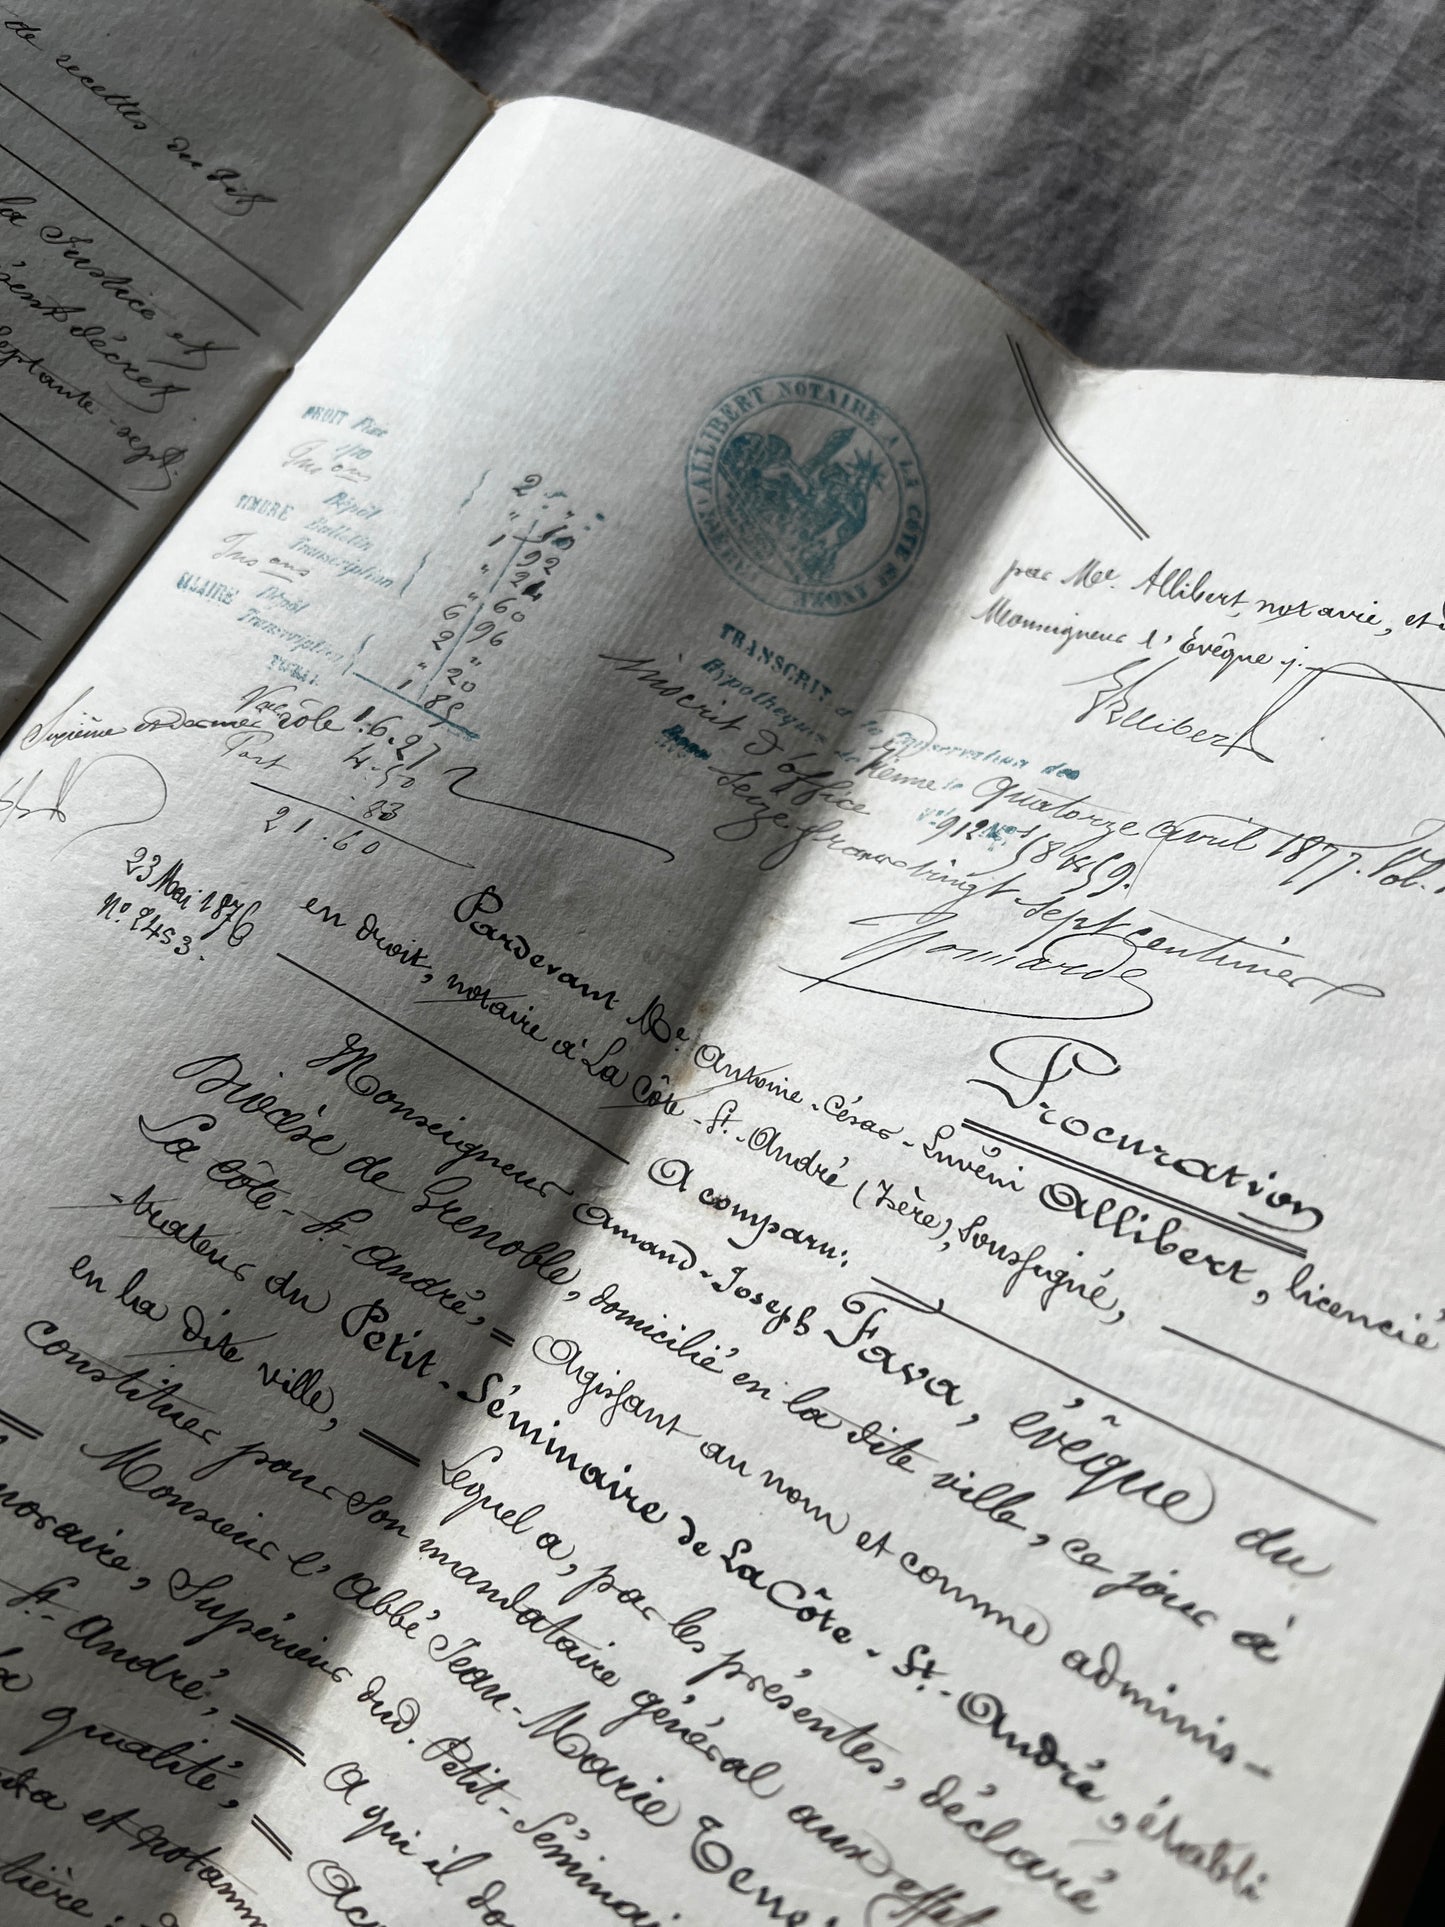 de recettes du dit
la Justice et
décret
septante-sept.
DROIT Fixe
1/10
Dépôt
TIMBRE Bulletin
Transcription
SALAIRE Dépôt
Transcription
TOTAL
2 "
" 10
1 92
" 24
" 60
6 96
2 "
" 20
1 85
rôle 16.27
Sixième et dernier
4.50
83
21.60
ALLIBERT NOTAIRE A LA COTE ST ANDRÉ
par Me. Allibert, notaire, et
Monseigneur l'Évêque ./.
Allibert
TRANSCRIT à la Conservation des
Hypothèques de Vienne le Quatorze avril 1877. Vol.
Inscrit d'office Vol. 912 No. 58 & 59.
Reçu Seize francs vingt sept centimes
23 Mai 1876
No. 2453.
Procuration
Pardevant Me. Antoine-César-Juvéni Allibert, licencié
en droit, notaire à La Côte-St.-André (Isère), soussigné,
A comparu:
Monseigneur Amand-Joseph Fava, évêque du
Diocèse de Grenoble, domicilié en la dite ville, ce jour à
La Côte-St.-André,
Agissant au nom et comme adminis-
-trateur du Petit-Séminaire de La Côte-St.-André, établi
en la dite ville,
Lequel a, par les présentes, déclaré
constituer pour son mandataire général aux effet
Monsieur l'Abbé Jean-Marie
Supérieur dud. Petit-Séminai
St.-André,
A qui il do
qualité,
et notamm